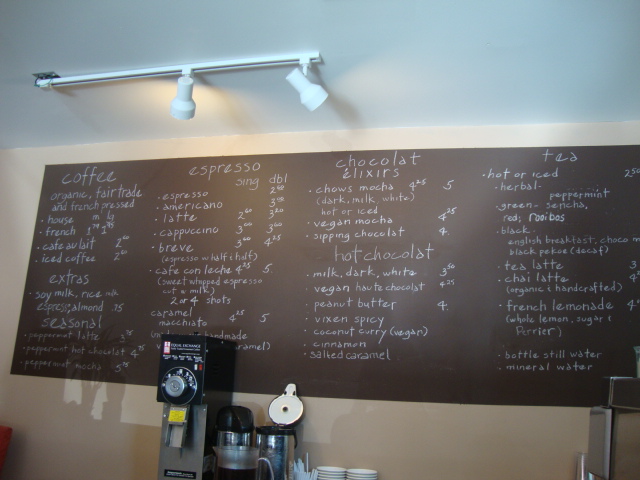 coffee
organic, fair trade
and french pressed
m lg
house
french
cafe au lait 2⁶⁰
iced coffee 2⁶⁰
extras
soy milk, rice milk
espresso, almond .75
seasonal
peppermint latte
peppermint hot chocolat
peppermint mocha
espresso
sing dbl
espresso
americano
latte
cappuccino
breve 3⁶⁰ 4²⁵
(espresso w half & half)
cafe con leche 4²⁵ 5
(sweet whipped espresso
2 or 4 shots
caramel
macchiato 4²⁵ 5
handmade
caramel)
chocolat
elixirs
chows mocha 4²⁵ 5
(dark, milk, white)
hot or iced
vegan mocha 4²⁵
sipping chocolat 4
hot chocolat
milk, dark, white 3⁵⁰
vegan haute chocolat 4
peanut butter 4
vixen spicy
coconut curry (vegan)
cinnamon
salted caramel
tea
hot or iced
herbal-
peppermint
green- sencha,
red, rooibos
black-
english breakfast, choco
black pekoe (decaf)
tea latte 3
chai latte 4
(organic & handcrafted)
french lemonade 4
(whole lemon, sugar &
Perrier)
bottle still water
mineral water
EQUAL EXCHANGE